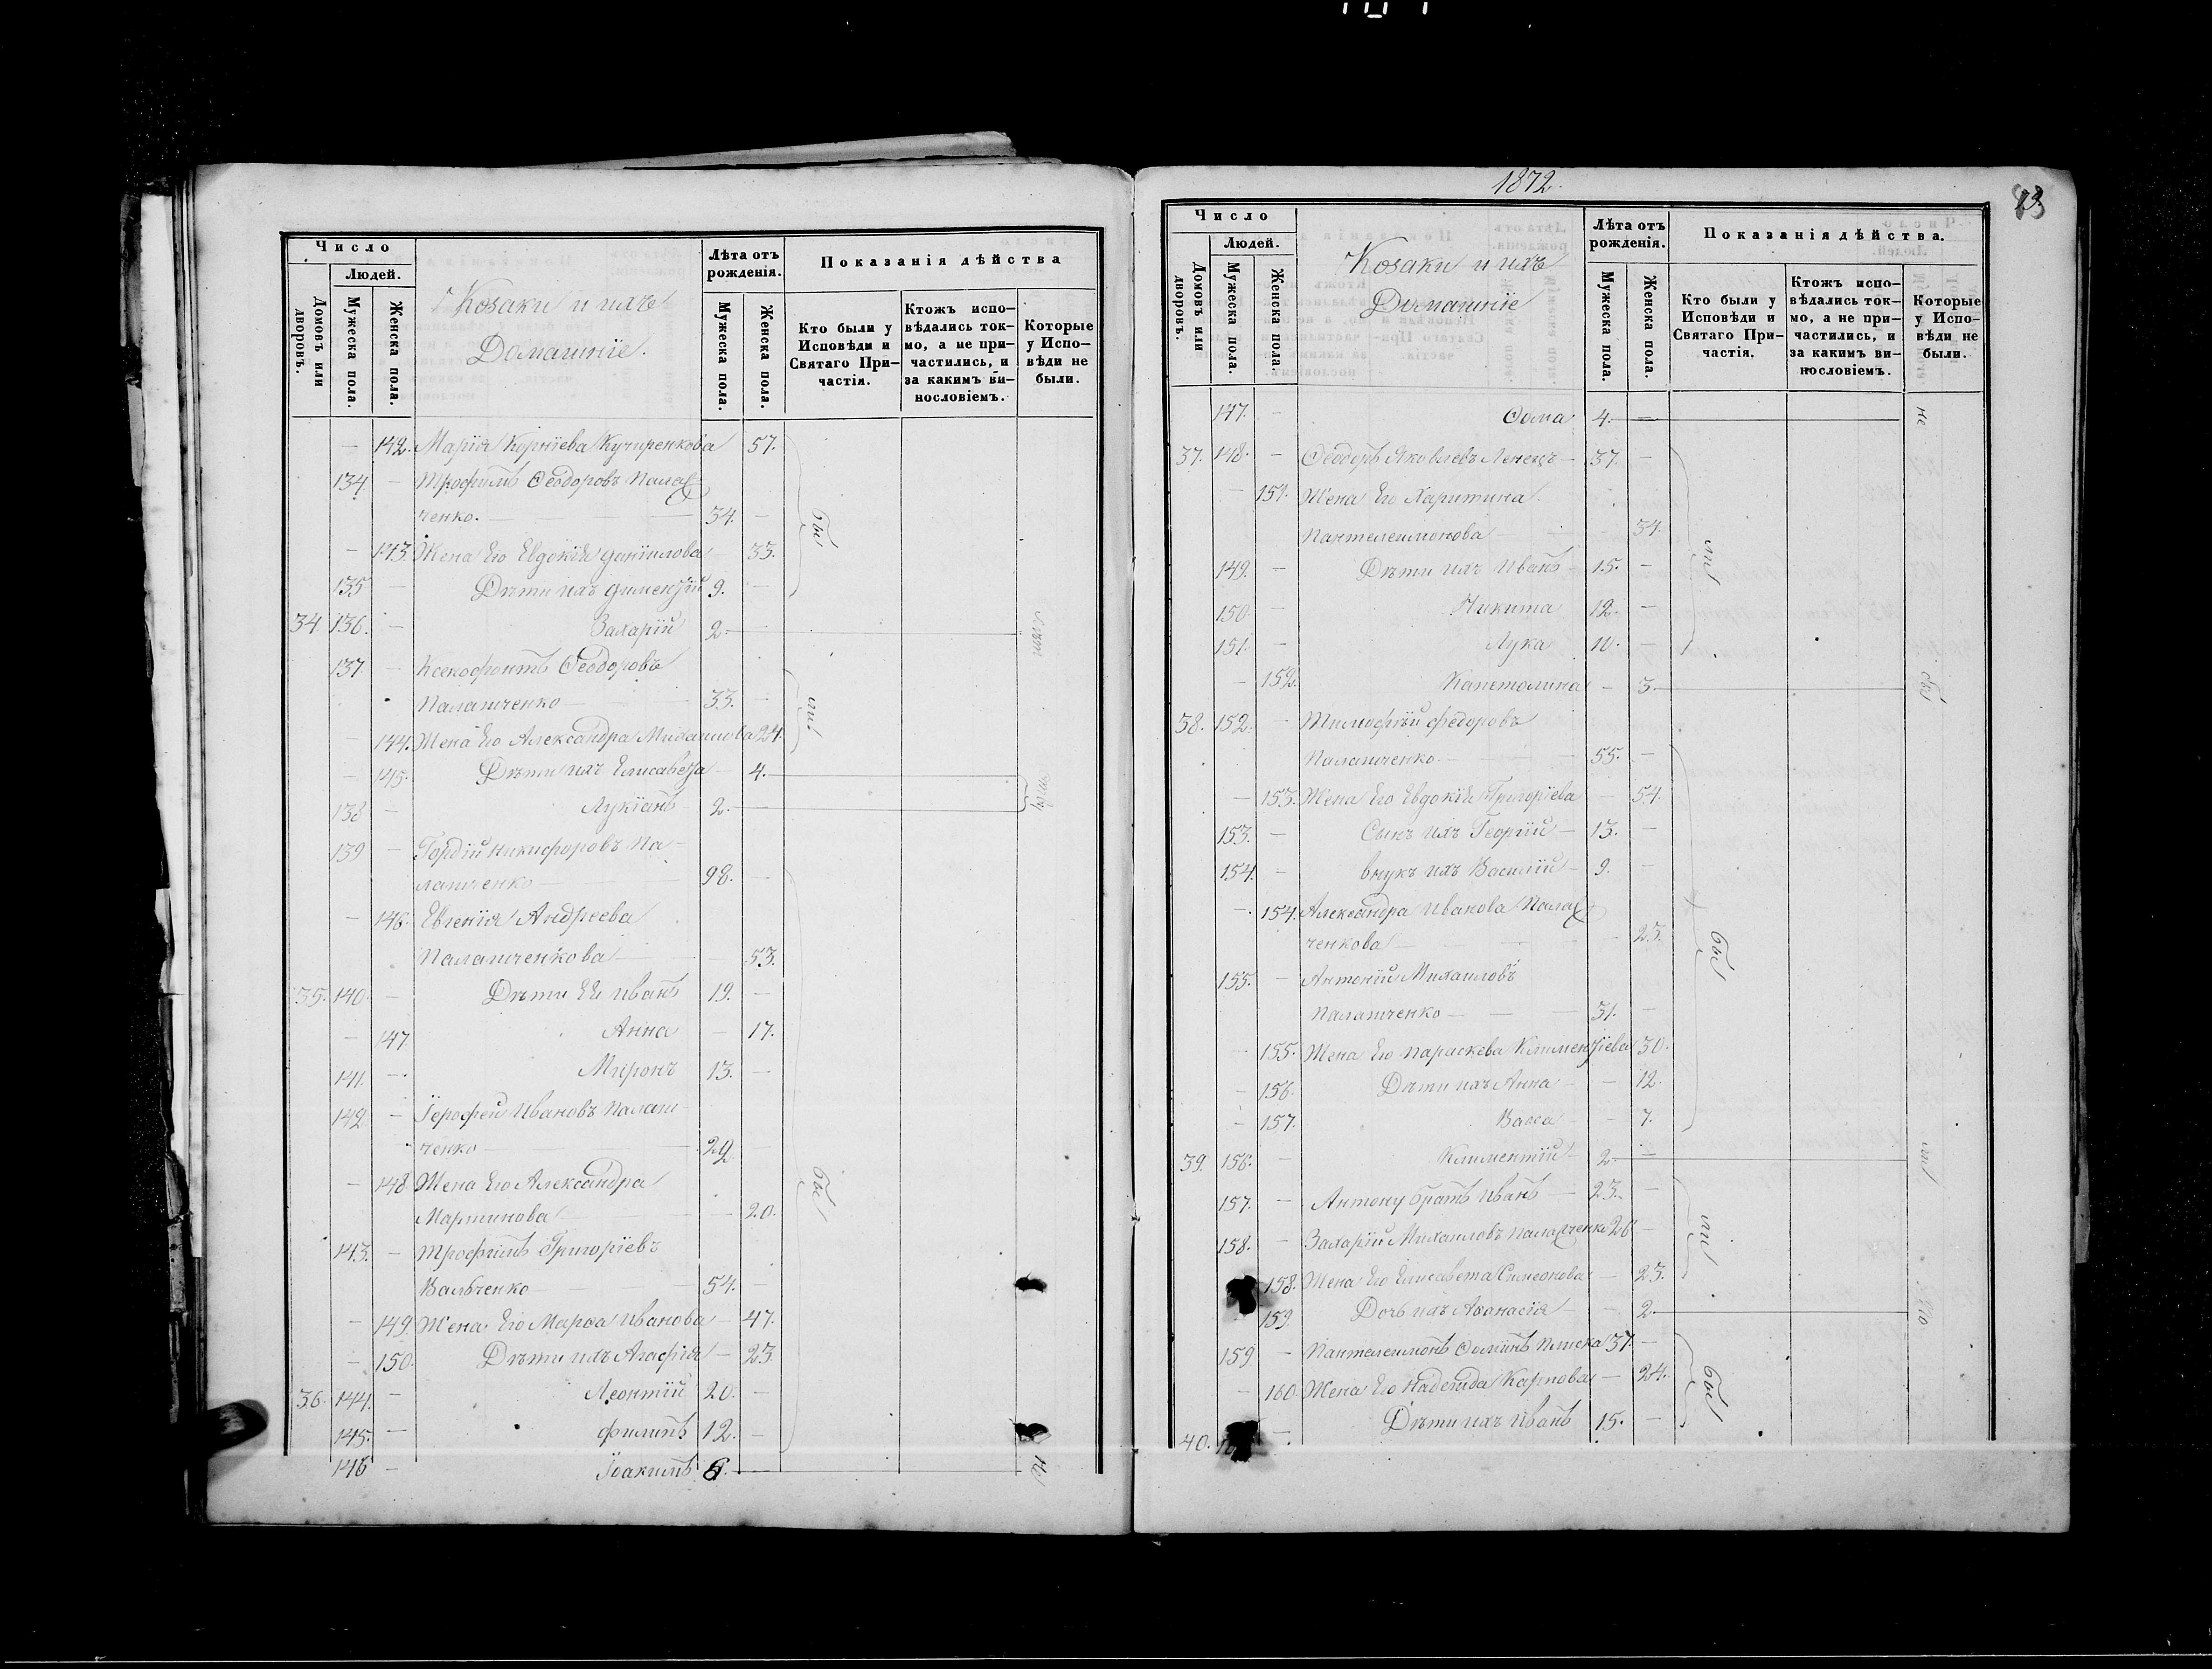 Число
Людей.
Домовъ или дворовъ.
Мужеска пола.
Женска пола.
Козаки и ихъ
Домашніе.
Лѣта отъ рожденія.
Мужеска пола.
Женска пола.
Показанія дѣйства
Кто были у Исповѣди и Святаго Причастія.
Ктожъ исповѣдались токмо, а не причастились, и за какимъ винословіемъ.
Которые у Исповѣди не были.
— 142. Марія Корніева Кучиренкова 57.
134. — Трофимъ Ѳеодоровъ Палащ=
ченко. — 34. —
— 143. Жена Его Евдокія Даніилова 33.
135 — Дѣти ихъ Диментій 9. —
34. 136. — Захарій 2. —
137. — Ксенофонтъ Ѳеодоровъ
Палащченко — 33. —
— 144. Жена Его Александра Михаилова 24.
— 145. Дѣти ихъ Елисавета — 4.
138 — Лукіанъ 2. —
139 — Гордій Никифоровъ Па-
лащченко — 98. —
— 146. Евгенія Андреева
Палащченкова — 53.
35. 140. — Дѣти Её Иванъ 19. —
— 147 Анна — 17.
141. — Миронъ 13. —
142. — Іерофей Ивановъ Палащ-
ченко — 29 —
— 148 Жена Его Александра
Мартинова — 20.
143. — Трофимъ Григоріевъ
Вальченко — 54. —
— 149. Жена Его Марѳа Иванова — 47.
— 150. Дѣти ихъ Агафія — 23
36. 144. — Леонтій 20. —
145. — Филипъ 12. —
146 — Іоакимъ 6. —
бы
ли
бы
1872.
73.
Число
Людей.
Домовъ или дворовъ.
Мужеска пола.
Женска пола.
Козаки и ихъ
Домашніе
Лѣта отъ рожденія.
Мужеска пола.
Женска пола.
Показанія дѣйства.
Кто были у Исповѣди и Святаго Причастія.
Ктожъ исповѣдались токмо, а не причастились, и за какимъ винословіемъ.
Которые у Исповѣди не были.
147. — Ѳома 4. —
37. 148. — Ѳеодоръ Яковлевъ Ленецъ — 37. —
— 151. Жена Его Харитина
Пантелеимонова — 34.
149. — Дѣти ихъ Иванъ — 15. —
150 — Никита 12. —
151. — Лука 10. —
— 152. Капетолина — 3.
38. 152. — Тимофѣй Федоровъ
Палащченко — 55. —
— 153. Жена Его Евдокія Григоріева — 54.
153. — Сынъ ихъ Георгій — 13. —
154. — внукъ ихъ Василій — 9. —
— 154. Александра Иванова Палащ
ченкова — 23.
155. — Антоній Михаиловъ
Палащченко — 31. —
— 155. Жена Его Параскева Климентіева 30.
— 156. Дѣти ихъ Анна — 12.
— 157. Васса — 7.
39. 156. — Климентій — 2. —
157. — Антону братъ Иванъ — 23. —
158. — Захарій Михаиловъ Палащченко 26 —
158. Жена Его Елисавета Симеонова — 23.
159. Дочь ихъ Аѳанасія — 2.
159 — Пантелеимонъ Ѳоминъ Плиска 37. —
— 160. Жена Его Надежда Карпова — 24.
40. — Дѣти ихъ Иванъ 15. —
не
ли
бы
бы
ли
ли
бы